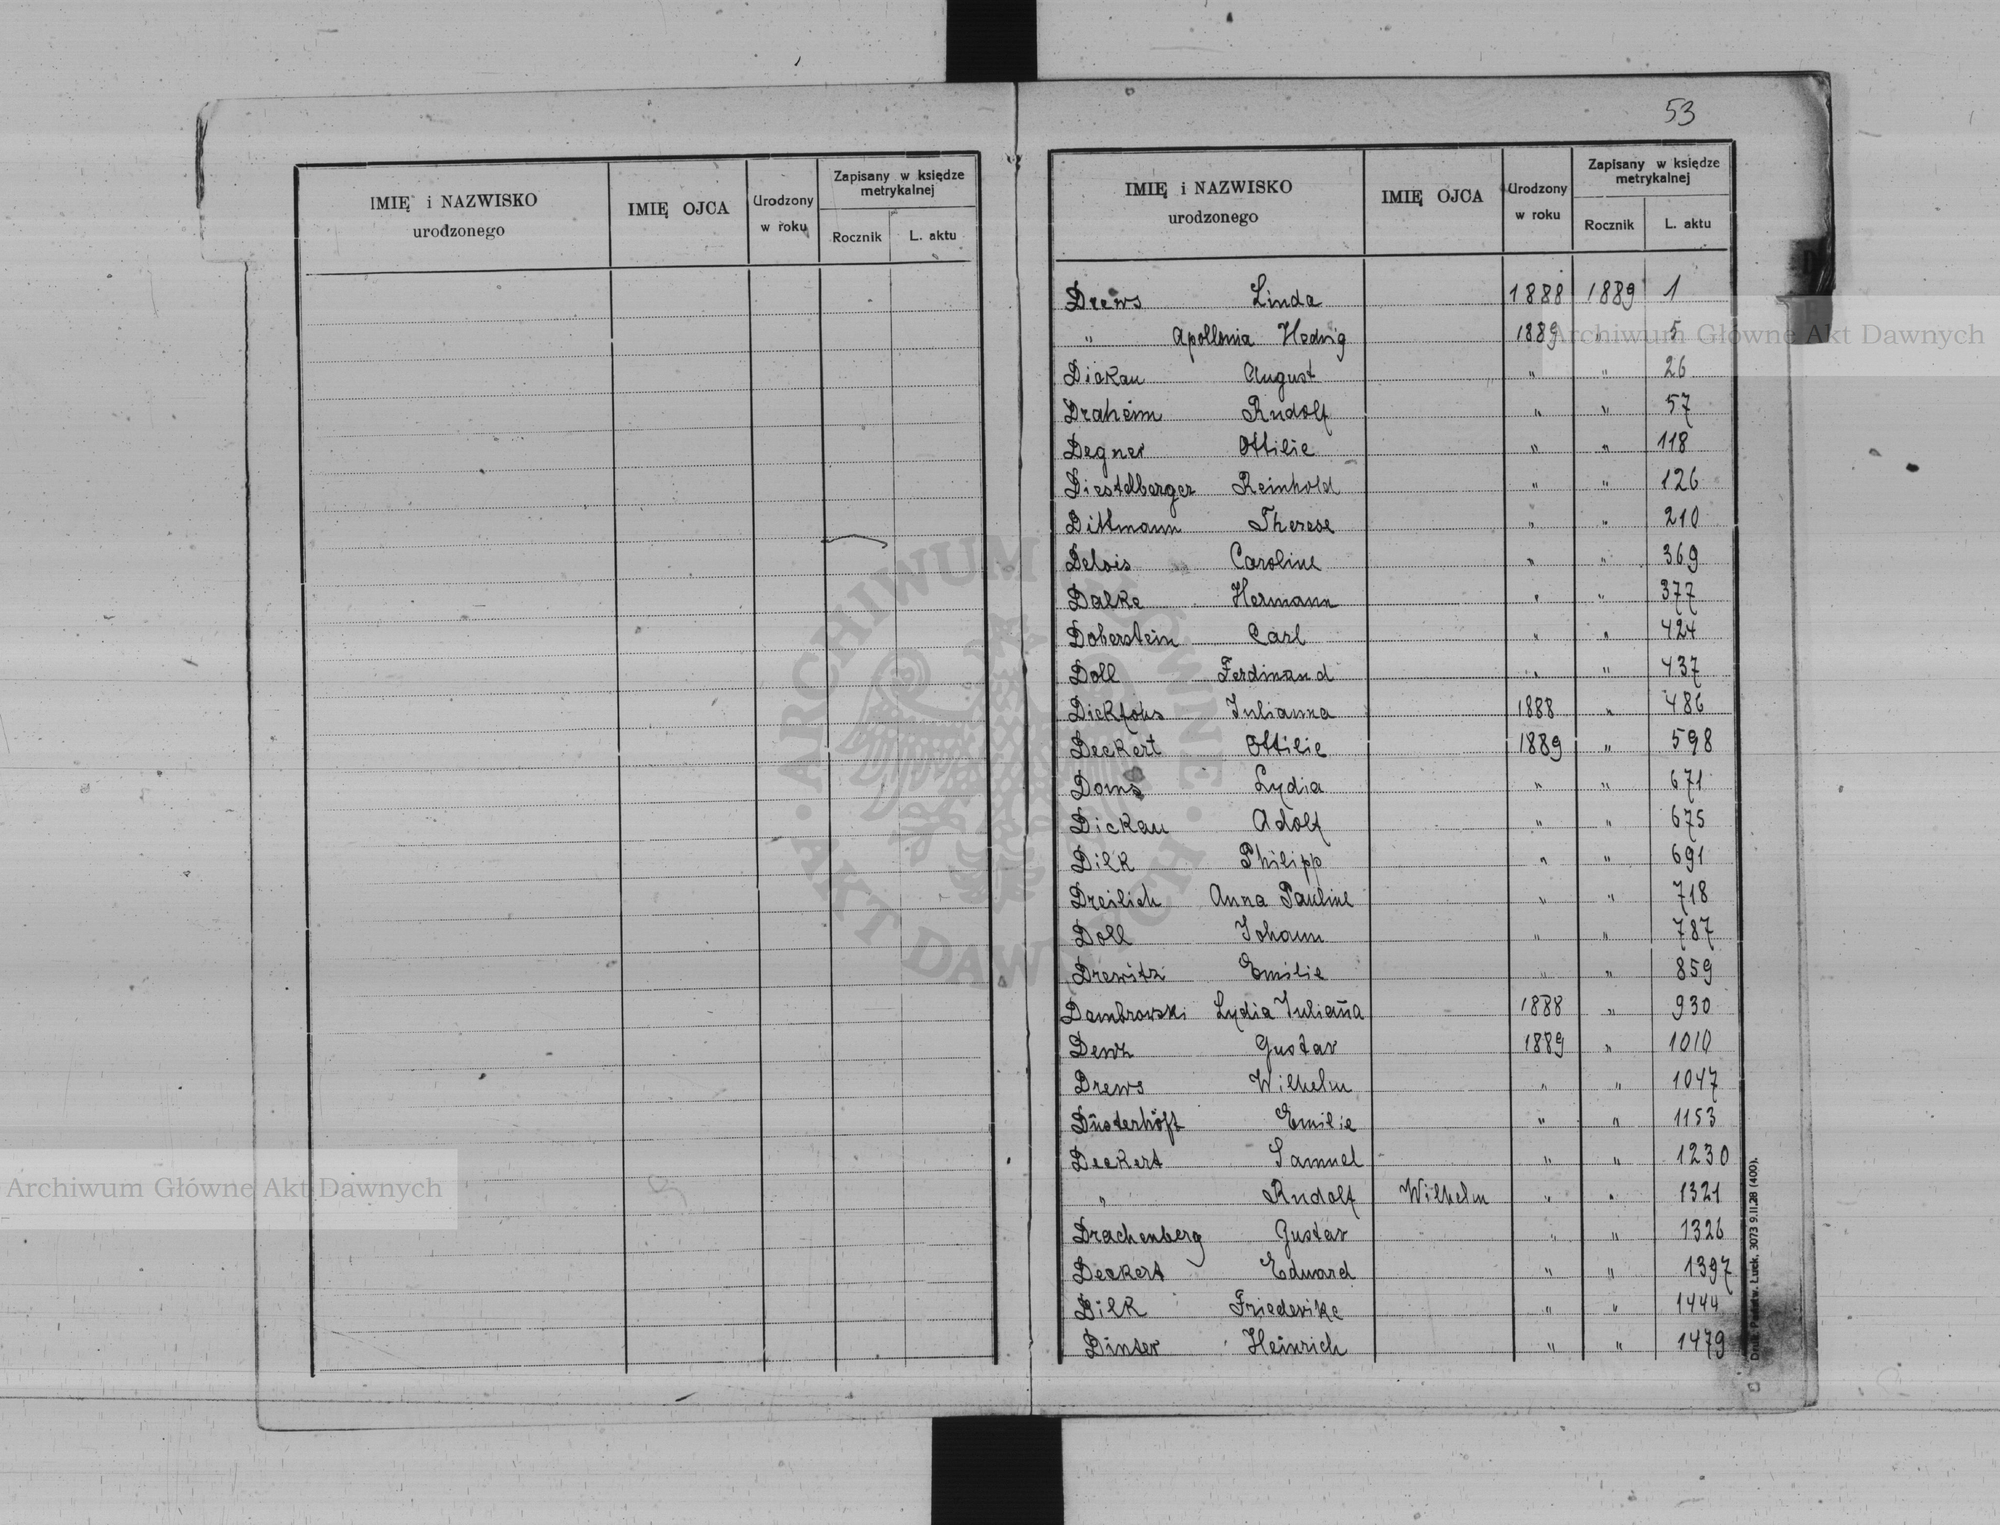 53
IMIĘ i NAZWISKO urodzonego IMIĘ OJCA Urodzony w roku Zapisany w księdze metrykalnej Rocznik L. aktu
IMIĘ i NAZWISKO urodzonego IMIĘ OJCA Urodzony w roku Zapisany w księdze metrykalnej Rocznik L. aktu
Drews Linda 1888 1889 1
" Apollonia Hedwig 1889 " 5
Dickau August " " 26
Draheim Rudolf " " 57
Degner Ottilie " " 118
Diestelberger Reinhold " " 126
Dittmann Therese " " 210
Delois Caroline " " 369
Dalke Hermann " " 377
Doberstein Carl " " 424
Doll Ferdinand " " 437
Julianna 1888 " 486
Deckert Ottilie 1889 " 598
Doms Lydia " " 671
Dickau Adolf " " 675
Dilk Philipp " " 691
Dreilich Anna Pauline " " 718
Doll Johann " " 787
Drewitz Emilie " " 859
Dombrowski Lydia Juliana 1888 " 930
Gustav 1889 " 1010
Drews Wilhelm " " 1047
Düsterhöft Emilie " " 1153
Deckert Samuel " " 1230
" Rudolf Wilhelm " " 1321
Drachenberg Gustav " " 1326
Deckert Eduard " " 1397
Dilk Friederike " " 1444
Dinser Heinrich " " 1479
Druk. Państw. Łuck. 3073 9.II.28 (400).
Archiwum Główne Akt Dawnych
Archiwum Główne Akt Dawnych
ARCHIWUM GŁÓWNE · AKT DAWNYCH ·